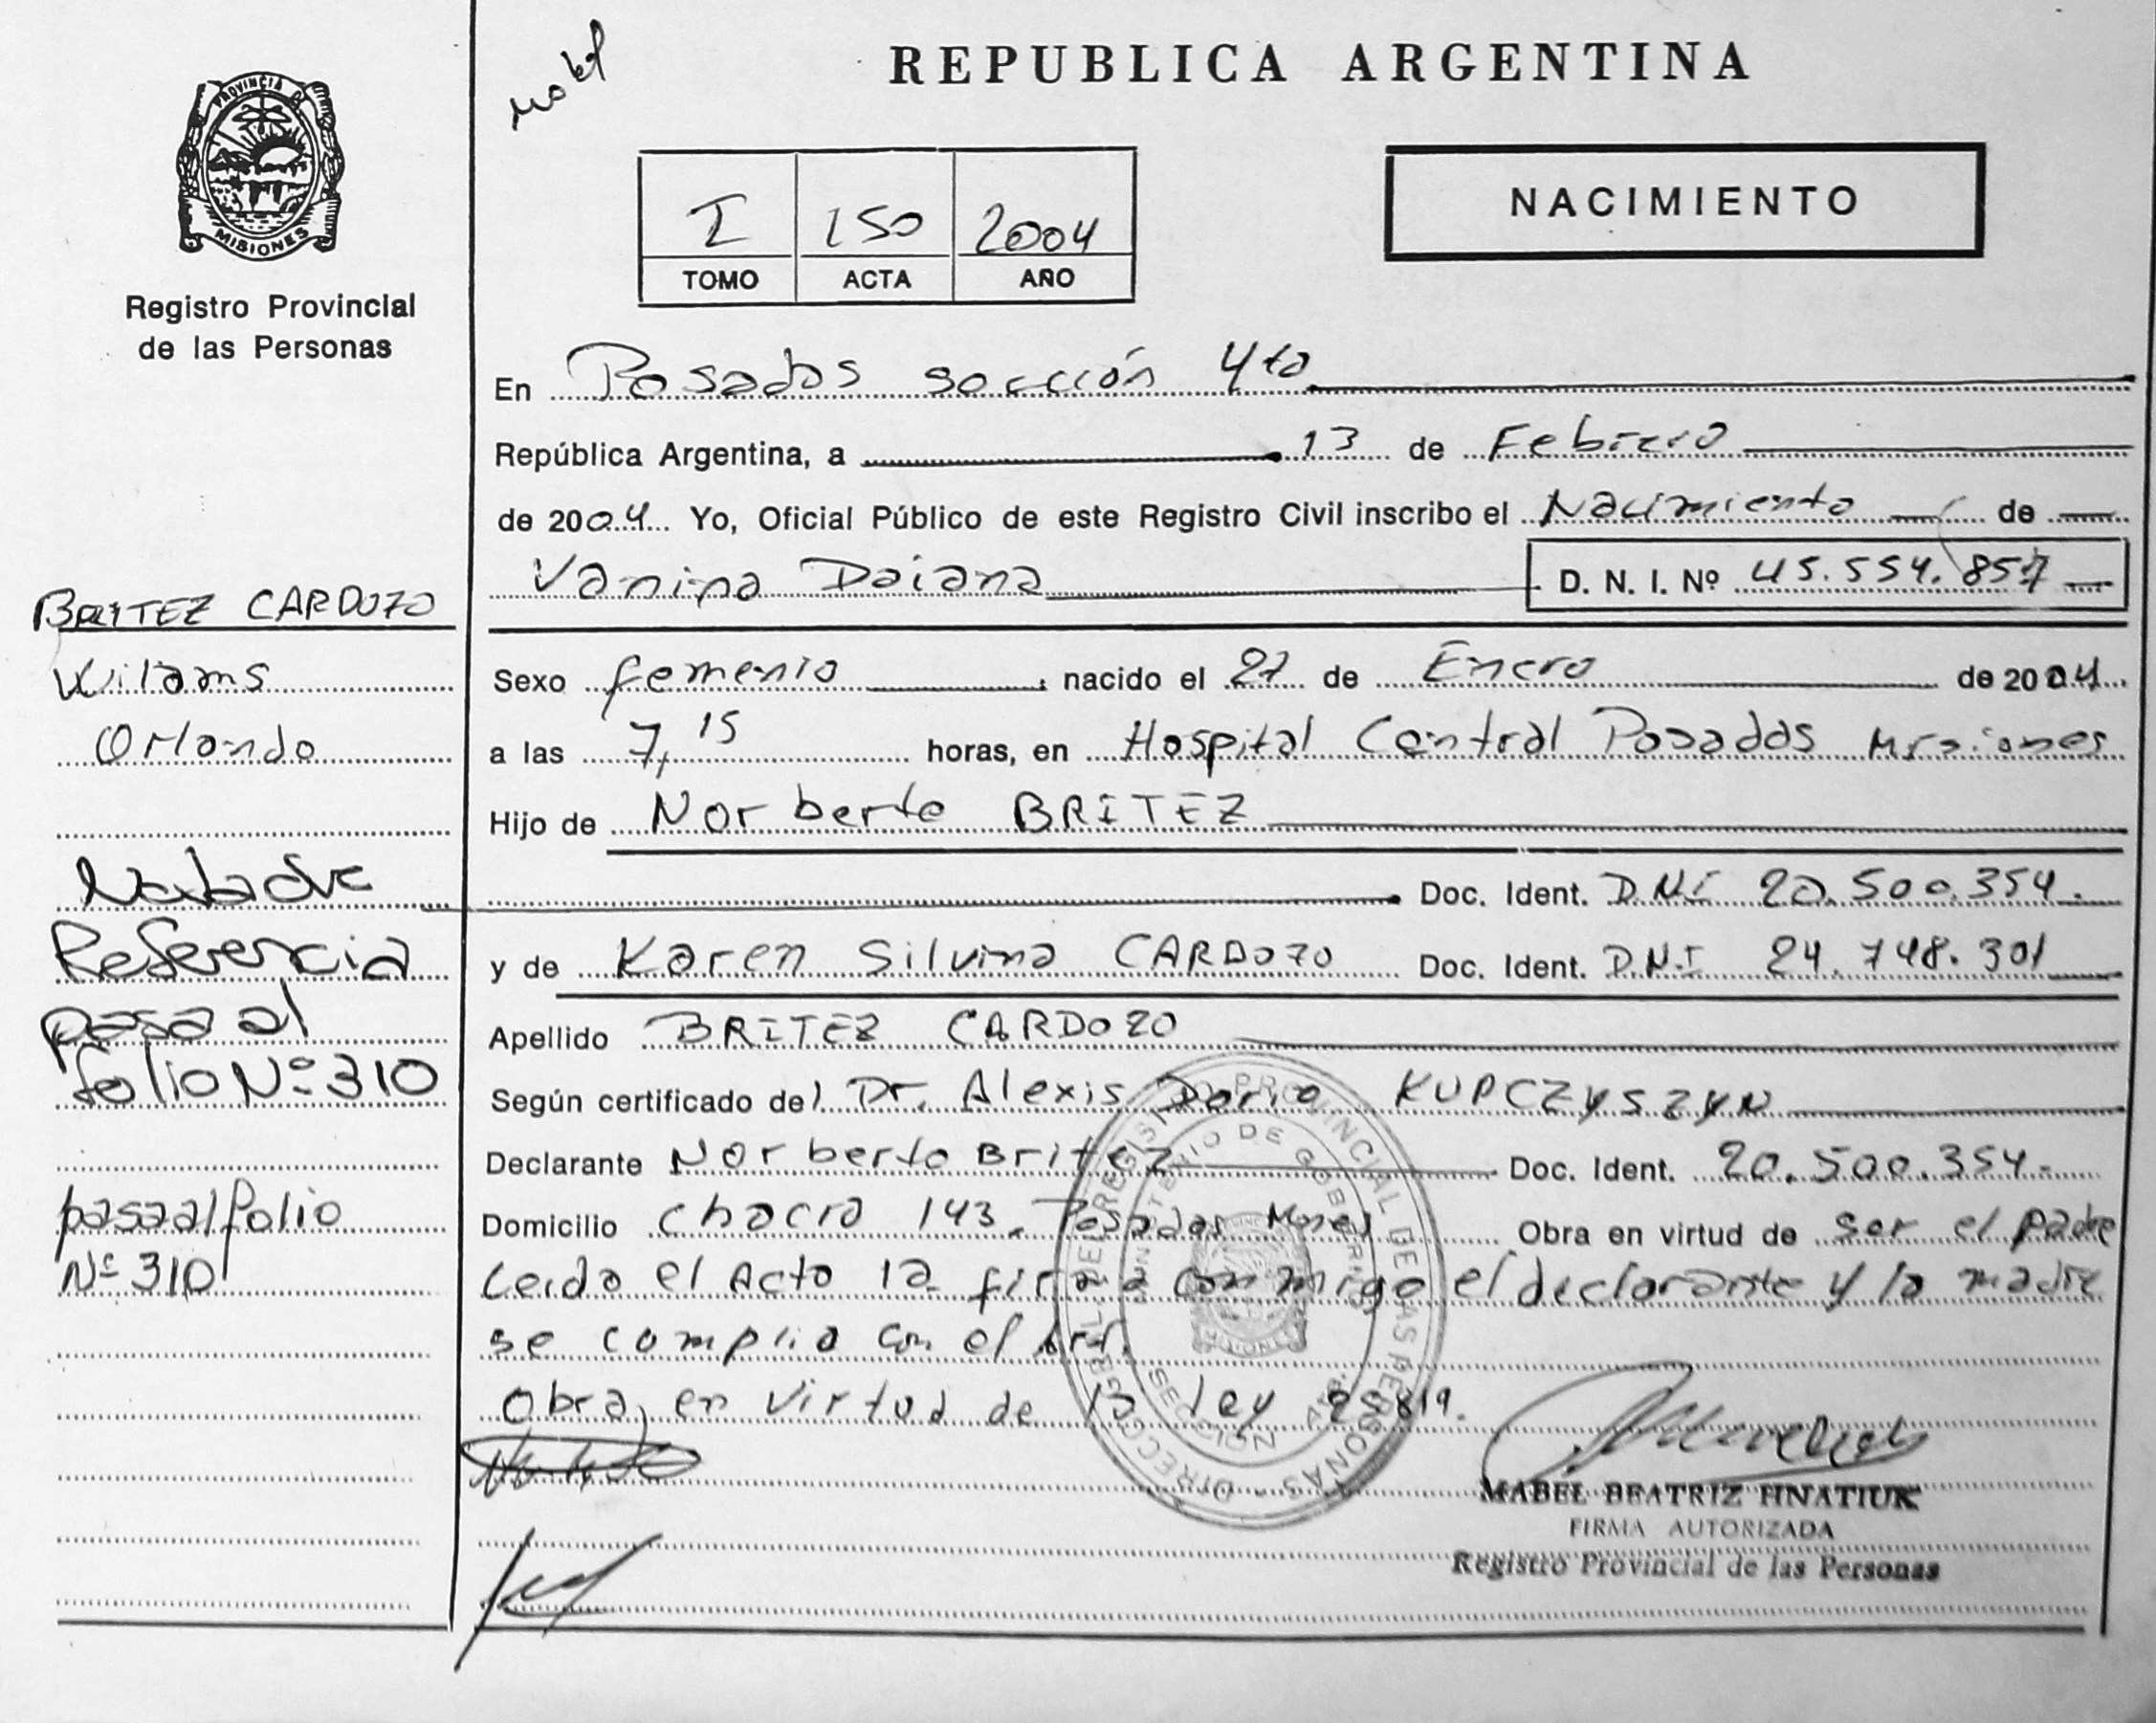 REPUBLICA ARGENTINA
PROVINCIA DE
MISIONES
Registro Provincial
de las Personas
NACIMIENTO
I 150 2004
TOMO ACTA AÑO
En Posadas sección 4ta
República Argentina, a 13 de Febrero
de 2004 Yo, Oficial Público de este Registro Civil inscribo el Nacimiento de
Vanina Daiana D. N. I. Nº 45.554.857
Sexo femenio nacido el 27 de Enero de 2004
a las 7,15 horas, en Hospital Central Posadas Misiones
Hijo de Norberto BRITEZ
Doc. Ident. D.N.I 20.500.354.
y de Karen Silvina CARDOZO Doc. Ident. D.N.I 24.748.301
Apellido BRITEZ CARDOZO
Según certificado del Dr. Alexis Dario KUPCZYSZYN
Declarante Norberto Britez Doc. Ident. 20.500.354-
Domicilio chacra 143. Posadas Mnes Obra en virtud de ser el padre
Leida el Acta la firma conmigo el declarante y la madre
se complio con el Art.
Obra, en Virtud de 13 ley 25819.
MABEL BEATRIZ HNATIUK
FIRMA AUTORIZADA
Registro Provincial de las Personas
DIRECCION GRAL. DEL REGISTRO PROVINCIAL DE LAS PERSONAS
MINISTERIO DE GOBIERNO
MISIONES
BRITEZ CARDOZO
Wiliams
Orlando
Nota de
Referencia
pasa al
folio Nº 310
pasa al folio
Nº 310